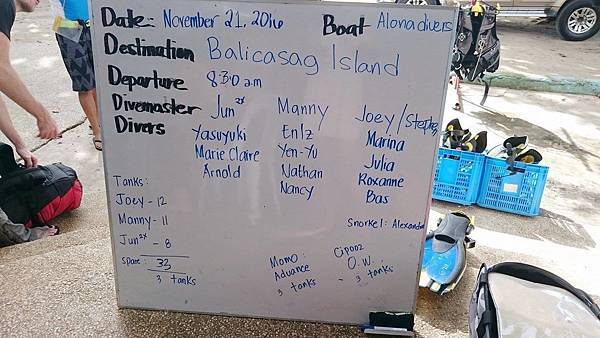 Date: November 21, 2016 Boat Alonadivers
Destination Balicasag Island
Departure 8:30 a.m
Divemaster Jun 2x Manny Joey/
Divers Yasuyuki Enlz Marina
Marie Claire Yen-Yu Julia
Arnold Nathan Roxanne
Nancy Bas
Tanks:
Joey - 12
Manny - 11
Jun 2x - 8
Spare: 33
3 tanks
Snorkel: Alexanda
Momo: Cipooz
Advance O.W.
3 tanks - 3 tanks